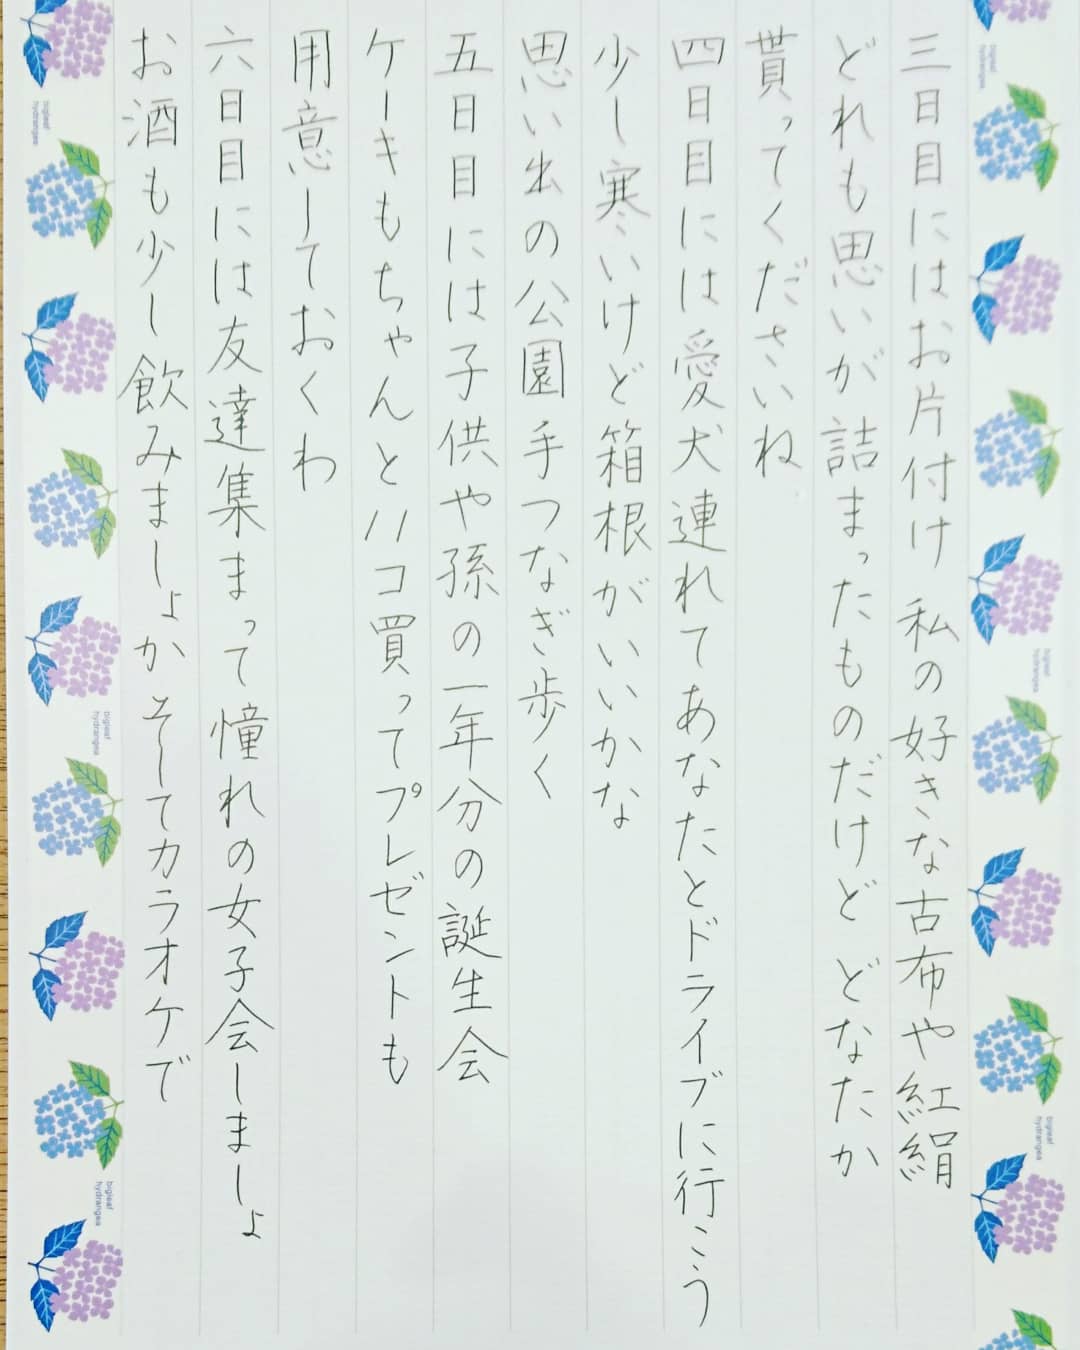 三日目にはお片付け 私の好きな古布や紅絹
どれも思いが詰まったものだけど どなたか
貰ってくださいね
四日目には愛犬連れてあなたとドライブに行こう
少し寒いけど箱根がいいかな
思い出の公園手つなぎ歩く
五日目には子供や孫の一年分の誕生会
ケーキもちゃんと八コ買ってプレゼントも
用意しておくわ
六日目には友達集まって憧れの女子会しましょ
お酒も少し飲みましょか そしてカラオケで
bigleaf
hydrangea
bigleaf
hydrangea
bigleaf
hydrangea
bigleaf
hydrangea
bigleaf
hydrangea
bigleaf
hydrangea